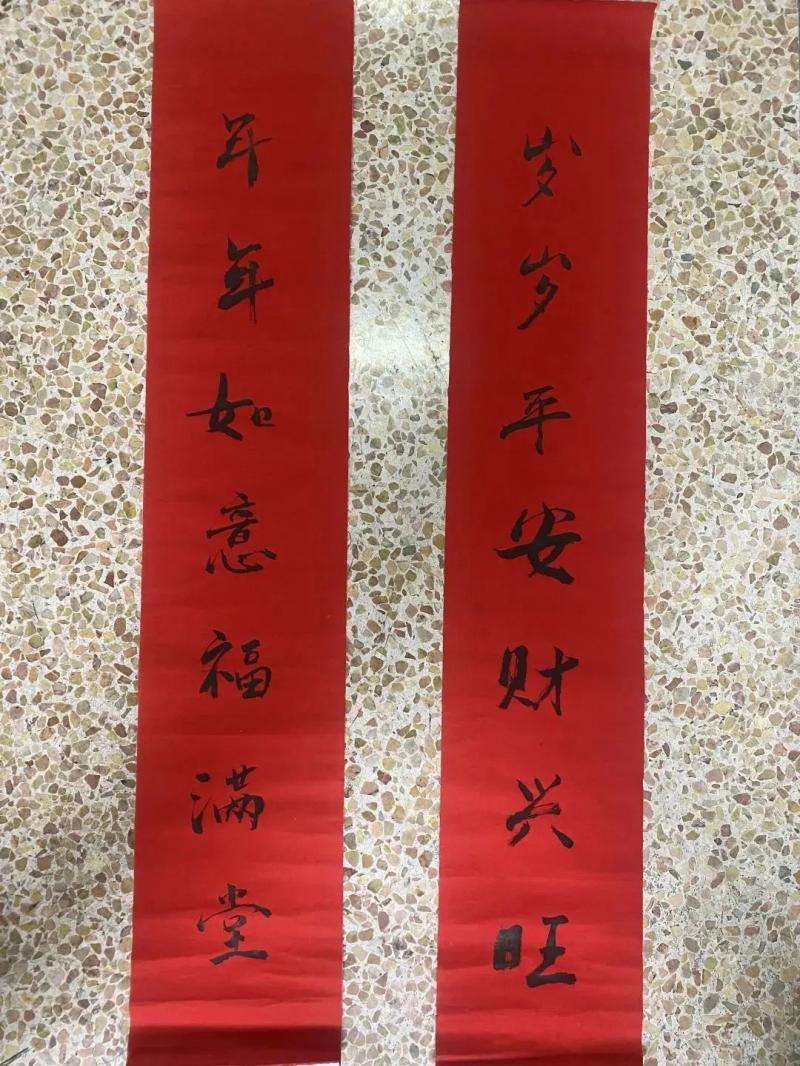 岁岁平安财兴旺
年年如意福满堂